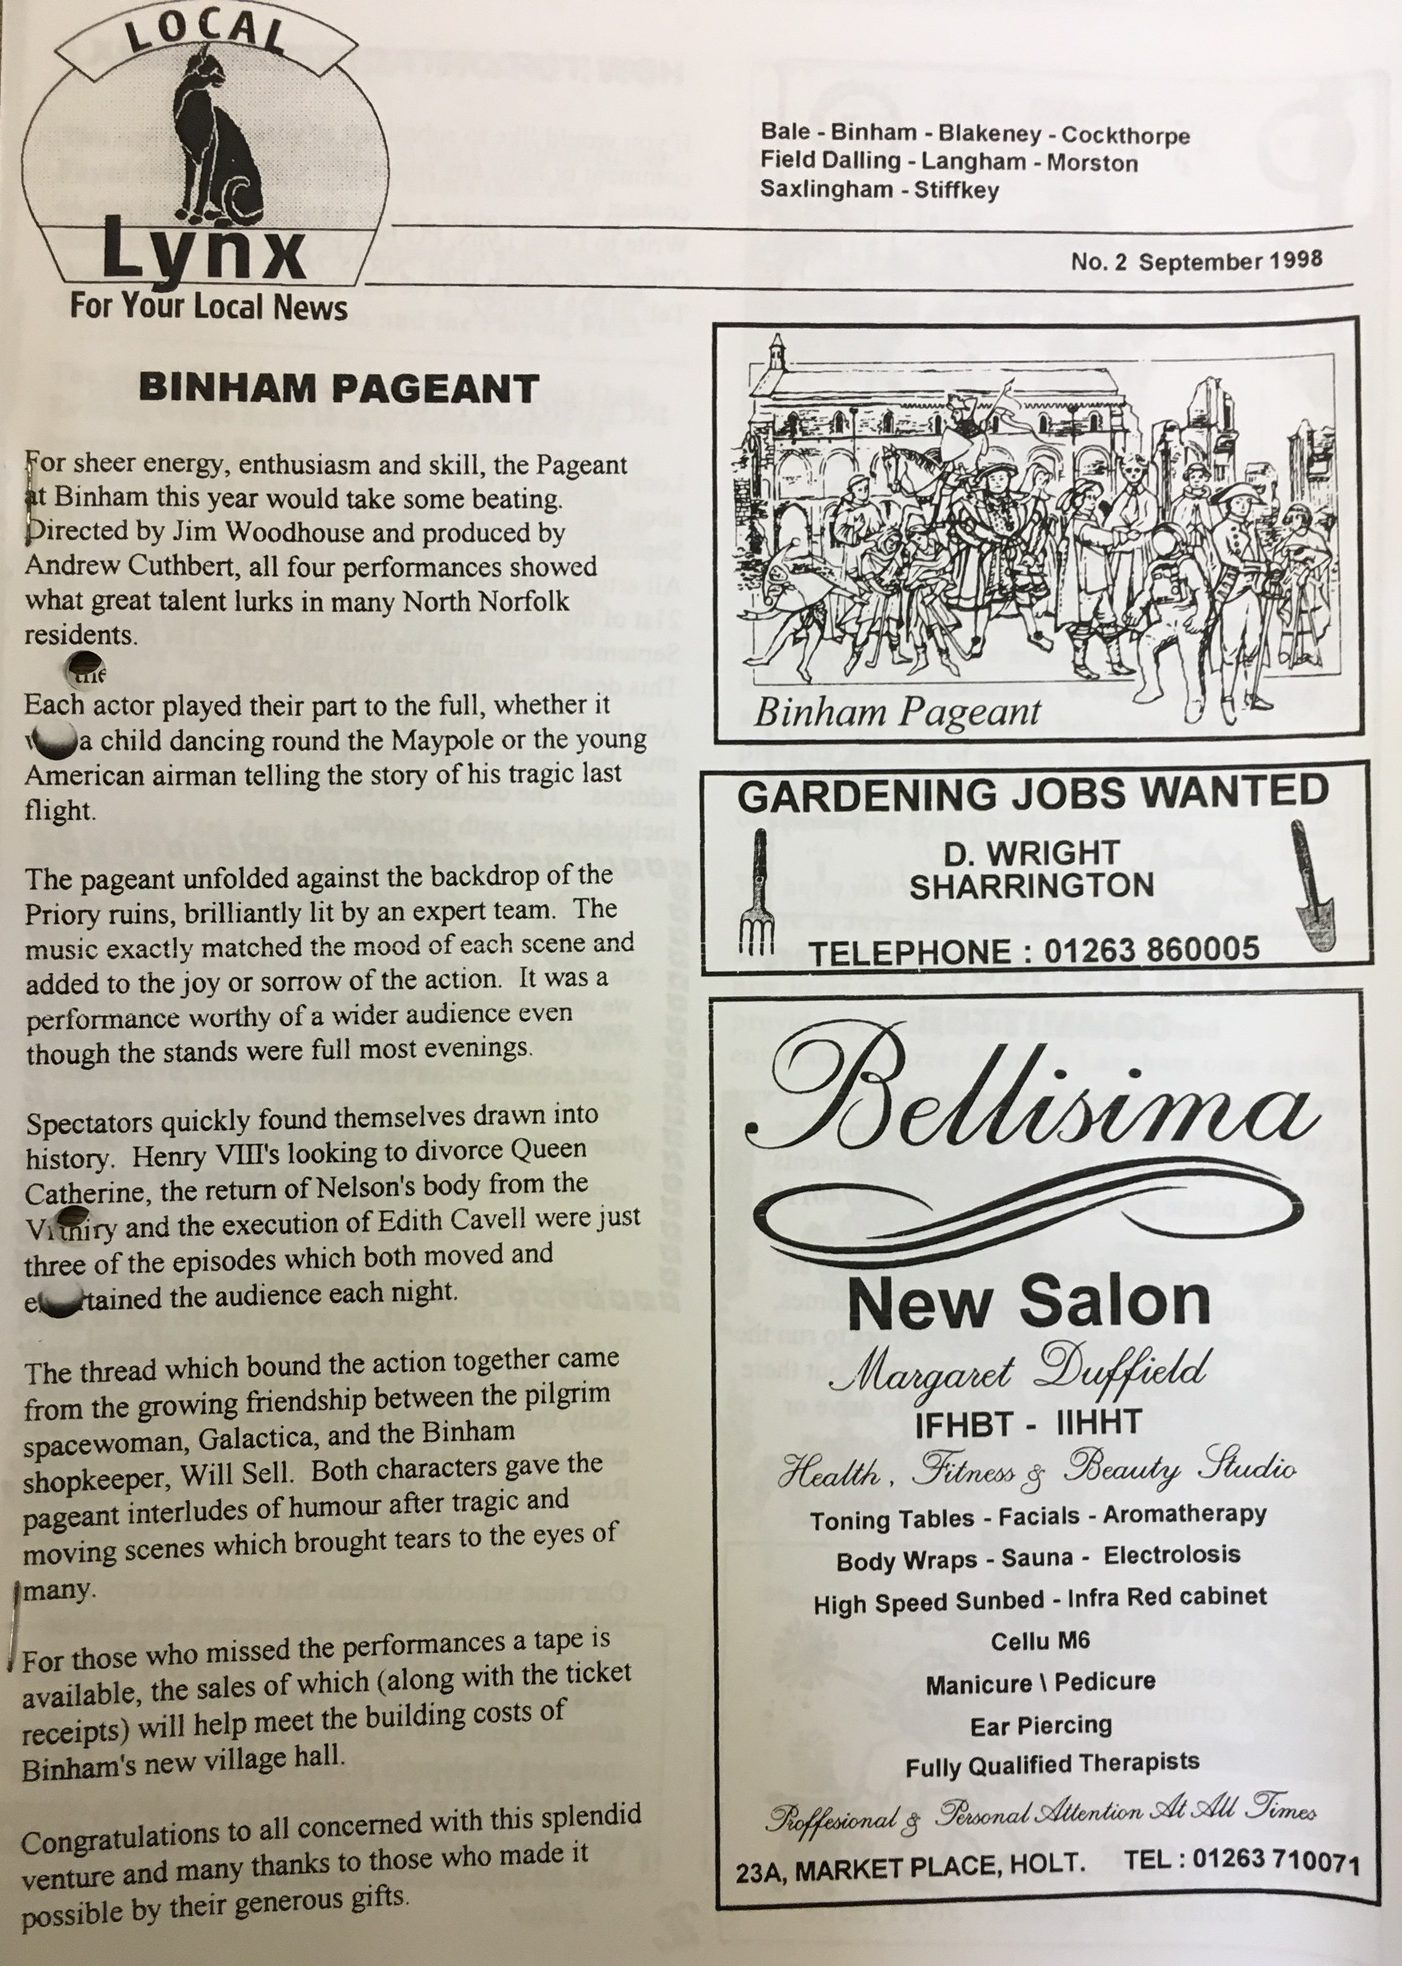 LOCAL
Lynx
For Your Local News
Bale - Binham - Blakeney - Cockthorpe
Field Dalling - Langham - Morston
Saxlingham - Stiffkey
No. 2 September 1998
BINHAM PAGEANT
For sheer energy, enthusiasm and skill, the Pageant
at Binham this year would take some beating.
Directed by Jim Woodhouse and produced by
Andrew Cuthbert, all four performances showed
what great talent lurks in many North Norfolk
residents.
Each actor played their part to the full, whether it
a child dancing round the Maypole or the young
American airman telling the story of his tragic last
flight.
The pageant unfolded against the backdrop of the
Priory ruins, brilliantly lit by an expert team. The
music exactly matched the mood of each scene and
added to the joy or sorrow of the action. It was a
performance worthy of a wider audience even
though the stands were full most evenings.
Spectators quickly found themselves drawn into
history. Henry VIII's looking to divorce Queen
Catherine, the return of Nelson's body from the
and the execution of Edith Cavell were just
three of the episodes which both moved and
the audience each night.
The thread which bound the action together came
from the growing friendship between the pilgrim
spacewoman, Galactica, and the Binham
shopkeeper, Will Sell. Both characters gave the
pageant interludes of humour after tragic and
moving scenes which brought tears to the eyes of
many.
For those who missed the performances a tape is
available, the sales of which (along with the ticket
receipts) will help meet the building costs of
Binham's new village hall.
Congratulations to all concerned with this splendid
venture and many thanks to those who made it
possible by their generous gifts.
Binham Pageant
GARDENING JOBS WANTED
D. WRIGHT
SHARRINGTON
TELEPHONE : 01263 860005
Bellisima
New Salon
Margaret Duffield
IFHBT - IIHHT
Health, Fitness & Beauty Studio
Toning Tables - Facials - Aromatherapy
Body Wraps - Sauna - Electrolosis
High Speed Sunbed - Infra Red cabinet
Cellu M6
Manicure \ Pedicure
Ear Piercing
Fully Qualified Therapists
Proffesional & Personal Attention At All Times
23A, MARKET PLACE, HOLT. TEL : 01263 710071